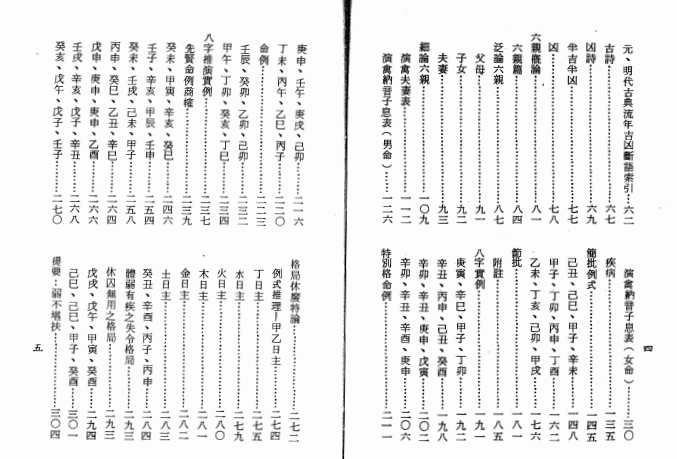 元、明代古典流年吉凶斷語索引……六二
古詩……六七
凶詩……六九
半吉半凶……七七
凶……七八
六親概論……八一
六親篇……八四
泛論六親……八七
父母……九一
子女……九二
夫妻……九三
細論六親……一〇九
演禽夫妻表……一一二
演禽納音子息表（男命）……一二六
演禽納音子息表（女命）……一三〇
疾病……一三五
簡批例式……一四五
己丑、己巳、甲子、辛未……一四八
甲子、丁卯、丙申、丁酉……一六二
乙未、丁亥、己卯、甲戌……一七六
節批……一八一
附註……一八五
八字實例……一九一
庚寅、辛巳、甲子、丁卯……一九二
辛丑、丙申、己丑、癸酉……一九八
辛卯、辛丑、庚申、戊寅……二〇二
辛卯、辛丑、辛酉、庚申……二〇六
特別格命例……二一一
四
庚申、壬午、庚戌、己卯……二一六
丁未、丙午、乙巳、丙子……二二〇
命例……二二三
壬辰、癸卯、乙卯、己卯……二三二
甲午、丁卯、癸亥、丁巳……二三四
八字推演實例……二三七
先賢命例商榷……二三九
癸未、甲寅、辛亥、癸巳……二四六
壬子、辛亥、甲辰、壬申……二五四
癸未、壬戌、己未、甲子……二五八
丙申、癸巳、乙丑、辛巳……二六四
戊申、庚申、庚申、乙酉……二六六
壬戌、辛亥、戊子、辛丑……二六八
癸亥、戊午、戊子、壬子……二七〇
格局休廢特論……二七二
例式推理—甲乙日主……二七四
丁日主……二七五
水日主……二七九
火日主……二八〇
木日主……二八一
金日主……二八二
土日主……二八三
癸丑、辛酉、丙子、丙申……二八四
體弱有疾之失令格局……二九三
休囚無用之格局……二九三
戊戌、戊午、甲寅、癸酉……二九四
己巳、己巳、甲子、癸酉……三〇一
提要：弱不堪扶……三〇四
五